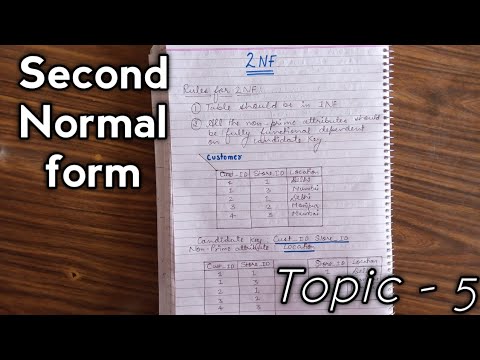 Second
Normal
form
2NF
Rules for 2NF
① Table should be in 1NF
② All the non prime attributes should
be fully functional dependent
on candidate key
Customer
Cust_ID Store_ID Location
1 1 Delhi
1 3 Mumbai
2 1 Delhi
3 2
4 3 Mumbai
Candidate Key Cust_ID Store_ID
Non-Prime attribute Location
Cust_ID Store_ID Store_ID Location
1 3
2 1
3 2
4 3
Topic - 5